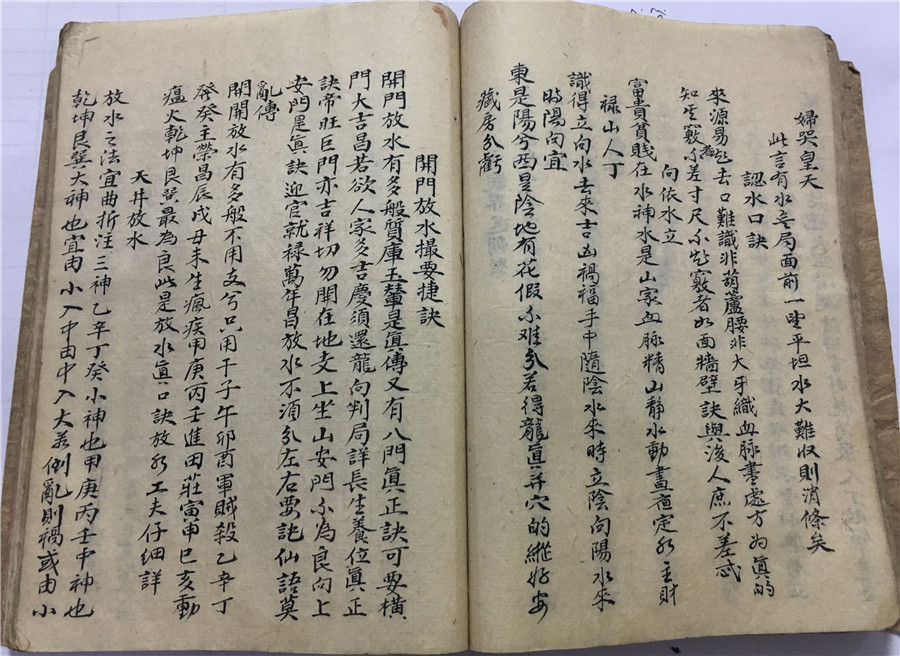 婦哭皇天
此言有水無局面前一望平坦水大難收則消條矣
認水口訣
來源易起去口難識非葫蘆腰非大牙織血脉盡處方為真的
知生竅不差寸尺不知竅者如面牆壁訣與後人庶不差忒
向依水立
富貴貧賤在水神水是山家血脉精山静水動晝夜定水主財
禄山人丁
識得立向水去來吉凶禍福手中隨陰水來時立陰向陽水來
時陽向宜
東是陽兮西是陰地有花假不难分若得龍真并穴的縱好安
藏房分虧
開門放水撮要捷訣
開門放水有多般質庫玉輦是真傳又有八門真正訣可要横
門大吉昌若欲人家多吉慶須還龍向判局詳長生養位真正
訣帝旺巨門亦吉祥切勿開在地支上坐山安門不為良向上
安門是真訣迎官就禄萬年昌放水不須分左右要訣仙語莫
亂傳
開開放水有多般不用支兮只用干子午卯酉軍賊殺乙辛丁
癸主榮昌辰戌丑未生瘋疾甲庚丙壬進田莊寅申巳亥動
瘟火乾坤艮巽最為良此是放水真口訣放水工夫仔细詳
天井放水
放水之法宜曲折注三神乙辛丁癸小神也甲庚丙壬中神也
乾坤艮巽大神也宜由小入中由中入大若倒亂則禍或由小